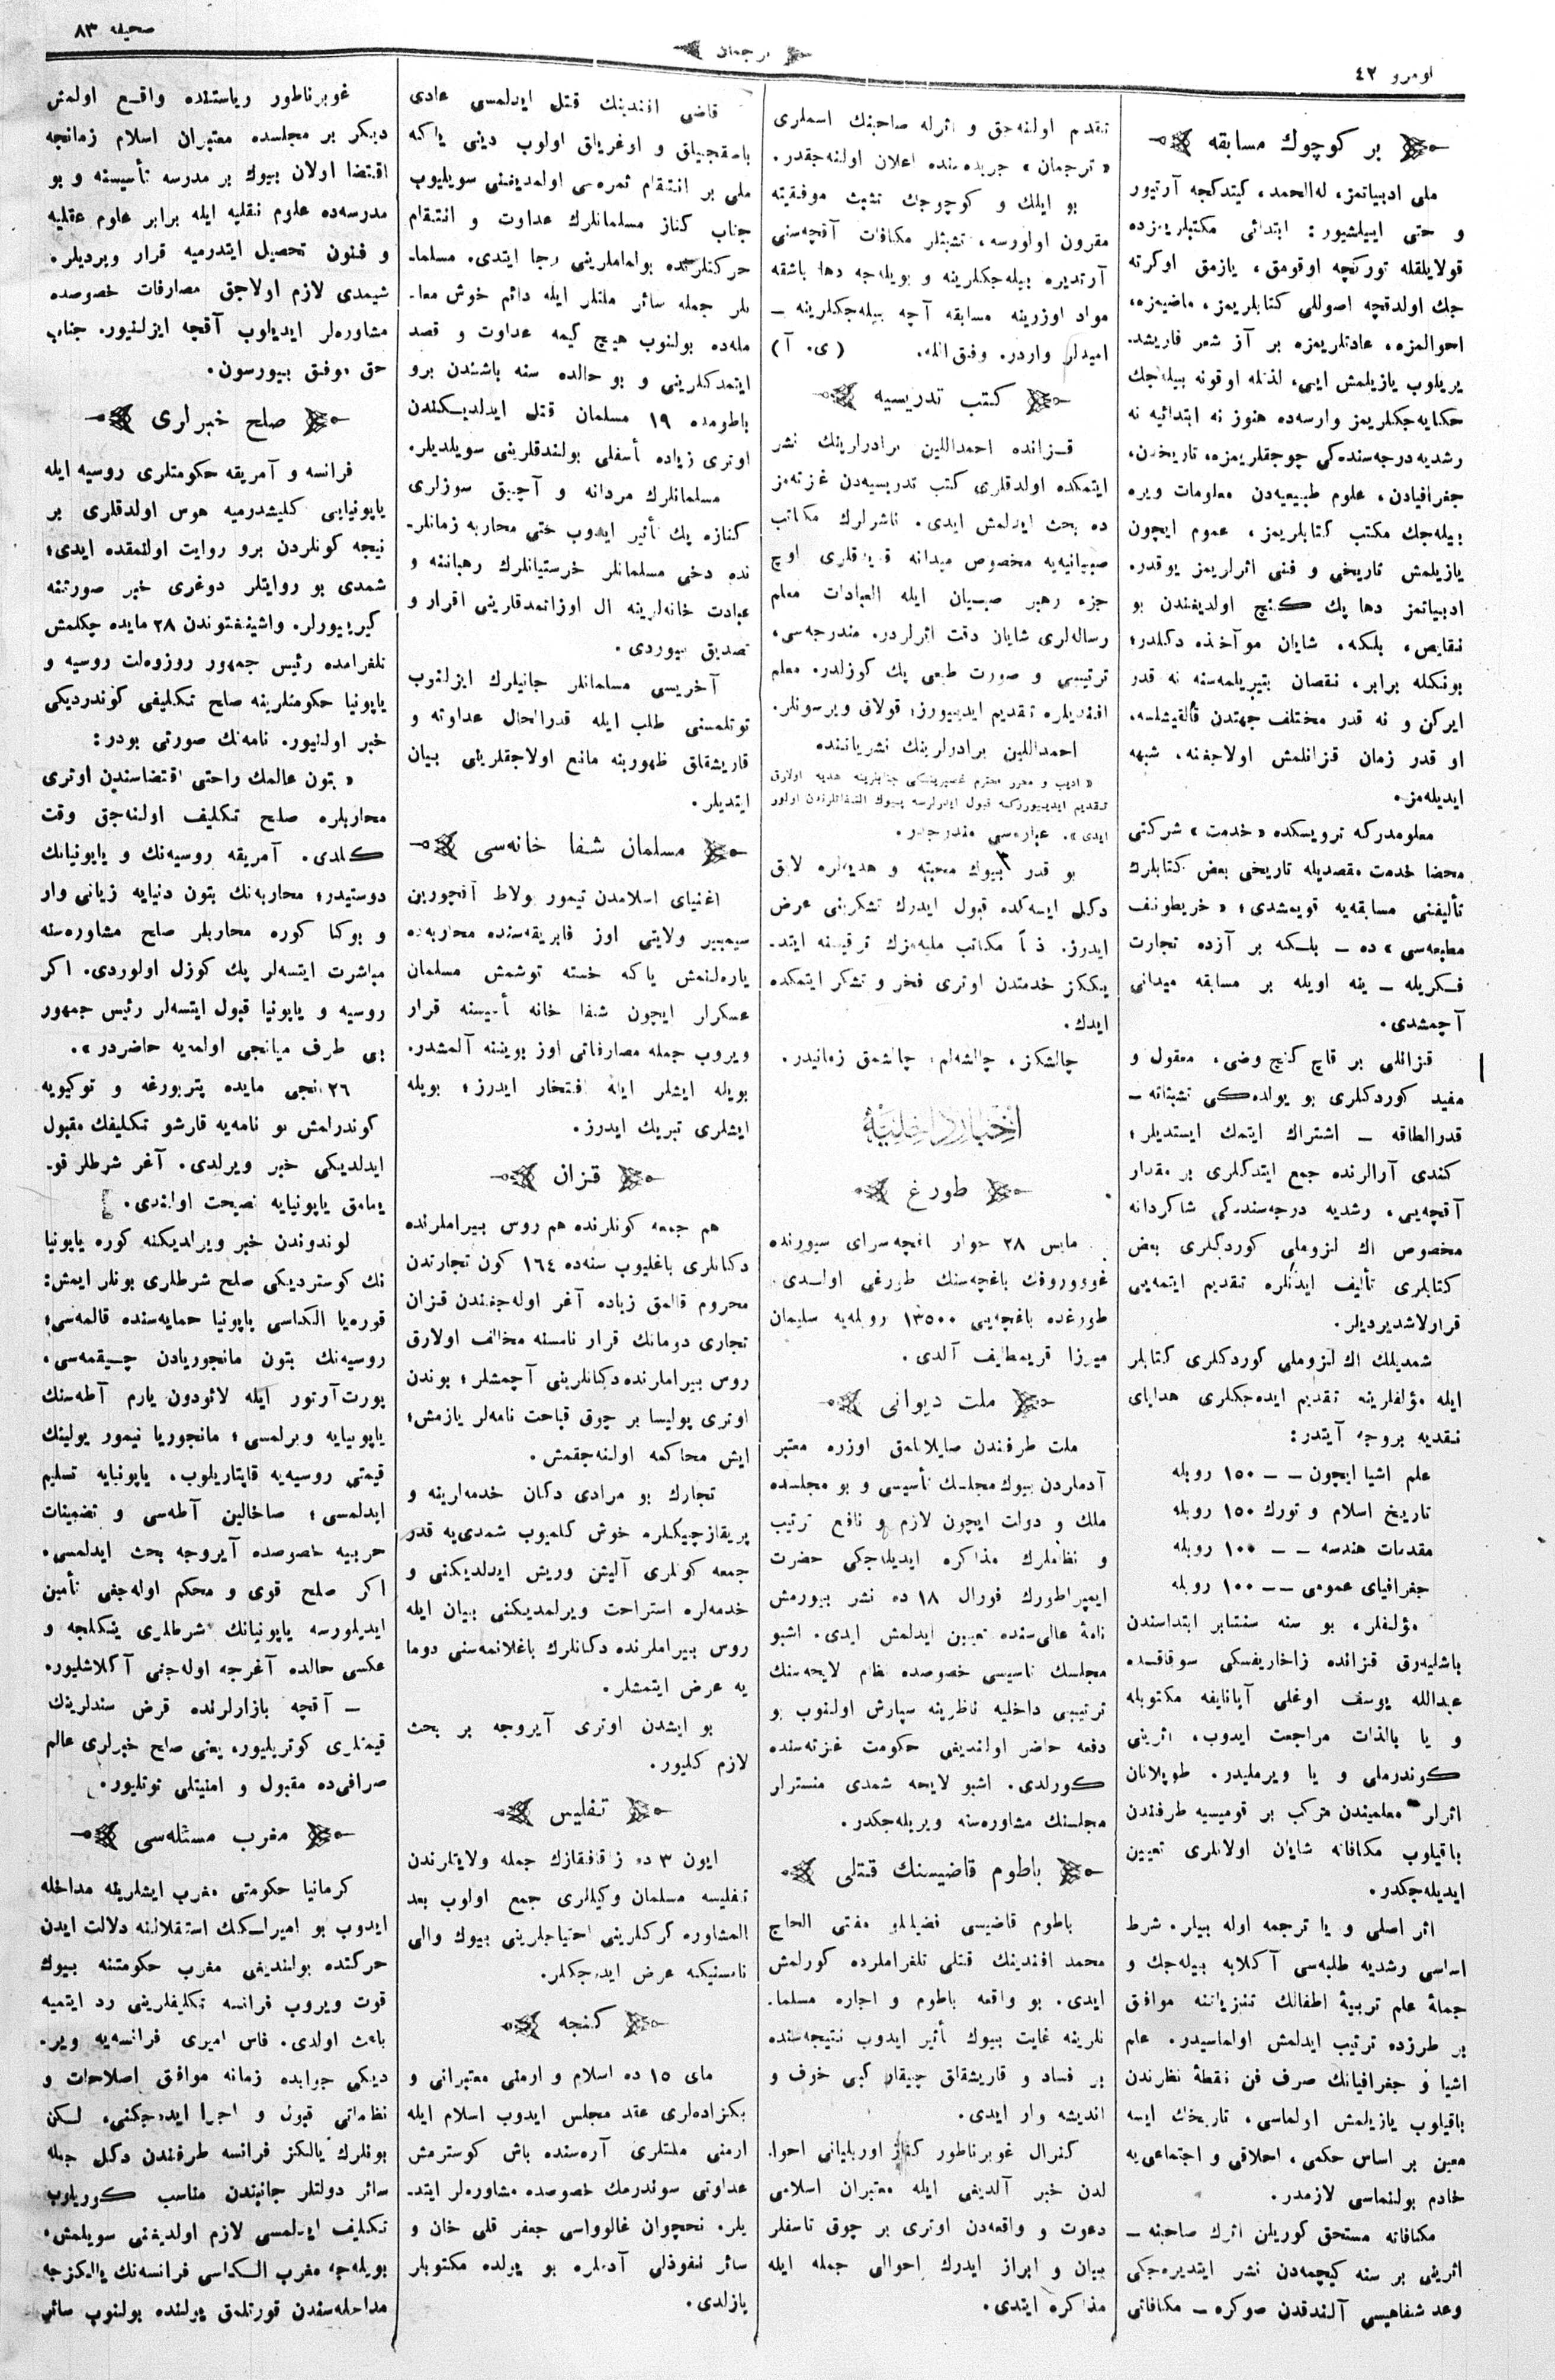 اومرو ٤٢
ترجمان
صحيفه ٨٣
بر كوچوك مسابقه
ملى ادبياتمز، له‌الحمد، كيتدكجه آرتيور
و حتى اييلشيور: ابتدائى مكتبلريمزده
قولايلقله توركچه اوقومق، يازمق اوكرته
جك اولدقچه اصوللى كتابلريمز، ماضيمزه،
احوالمزه، عادتلريمزه بر آز شعر قاريشد.
يريلوب يازيلمش ايى، لذتله اوقونه بيله‌جك
حكايه‌جكلريمز وارسه‌ده هنوز نه ابتدائيه نه
رشديه درجه‌سنده‌كى چوجقلريمزه، تاريخدن،
جغرافيادن، علوم طبيعيه‌دن معلومات ويره
بيله‌جك مكتب كتابلريمز، عموم ايچون
يازيلمش تاريخى و فنى اثرلريمز يوقدر.
ادبياتمز دها پك كنج اولديغندن بو
نقايص، بلكه، شايان موآخذه دكلدر؛
بونكله برابر، نقصان بتيريلمه‌سنه نه قدر
ايركن و نه قدر مختلف جهتدن قالقيشلسه،
او قدر زمان قزانلمش اولاجغنه، شبهه
ايديله‌مز.
معلومدركه ترويسكده «خدمت» شركتى
محضا خدمت مقصديله تاريخى بعض كتابلرك
تأليفنى مسابقه‌يه قويمشدى؛ «خريطونف
مطبعه‌سى» ده ـ بلكه بر آزده تجارت
فكريله ـ ينه اويله بر مسابقه ميدانى
آچمشدى.
قزانلى بر قاچ كنج وضى، معقول و
مفيد كوردكلرى بو يولده‌كى تشبثاته ـ
قدرالطاقه ـ اشتراك ايتمك ايستديلر؛
كندى آرالرنده جمع ايتدكلرى بر مقدار
آقچه‌يى، رشديه درجه‌سنده‌كى شاكردانه
مخصوص اك لزوملى كوردكلرى بعض
كتابلرى تأليف ايدنلره تقديم ايتمه‌يى
قرارلاشديرديلر.
شمديلك اك لزوملى كوردكلرى كتابلر
ايله مؤلفلرينه تقديم ايده‌جكلرى هداياى
نقديه بروجه آيتدر:
علم اشيا ايچون ــ ــ ١٥٠ روبله
تاريخ اسلام و تورك ١٥٠ روبله
مقدمات هندسه ــ ــ ١٠٠ روبله
جغرافياى عمومى ــ ــ ١٠٠ روبله
مؤلفلر، بو سنه سنتنابر ابتداسندن
باشليه‌رق قزانده زاخاريفسكى سوقاقنده
عبدالله يوسف اوغلى آپانايفه مكتوبله
و يا بالذات مراجعت ايدوب، اثرينى
كوندرملى و يا ويرمليدر. طوپلانان
اثرلر معلميندن مركب بر قوميسيه طرفندن
باقيلوب مكافاته شايان اولانلرى تعيين
ايديله‌جكدر.
اثر اصلى و يا ترجمه اوله بيلر. شرط
اساسى رشديه طلبه‌سى آكلايه بيله‌جك و
جملهٔ علم تربيهٔ اطفالك تنزياتنه موافق
بر طرزده ترتيب ايدلمش اولماسيدر. علم
اشيا و جغرافيانك صرف فن نقطهٔ نظرندن
باقيلوب يازيلمش اولماسى، تاريخك ايسه
معين بر اساس حكمى، اخلاقى و اجتماعى‌يه
خادم بولنماسى لازمدر.
مكافاته مستحق كوريلن اثرك صاحبنه ـ
اثرينى بر سنه كيچمه‌دن نشر ايتديره‌جكى
وعد شفاهيسى آلندقدن صوكره ـ مكافاتى
تقدم اولنه‌جق و اثرله صاحبنك اسملرى
«ترجمان» جريده‌سنده اعلان اولنه‌جقدر.
بو ايلك و كوچوجك تشبث موفقيته
مقرون اولورسه، تشبثلر مكافات آقچه‌سنى
آرتديره بيله‌جكلرينه و بويله‌جه دها باشقه
مواد اوزرينه مسابقه آچه بيله‌جكلرينه ـ
اميدلر واردر. وفق الله. (ى. آ)
كتب تدريسيه
قزانده احمداللين برادرلرينك نشر
ايتمكده اولدقلرى كتب تدريسيه‌دن غزته‌مز
ده بحث ايدلمش ايدى. ناشرلرك مكاتب
صبيانيه‌يه مخصوص ميدانه قويدقلرى اوچ
جزء رهبر صبيان ايله العبادات معلم
رساله‌لرى شايان دقت اثرلردر. مندرجه‌سى،
ترتيبى و صورت طبعى پك كوزلدر. معلم
افنديلره تقديم ايدييورز؛ قولاق ويرسونلر.
احمداللين برادرلرينك نشرياتنده
«اديب و محرر محترم غصپرينسكى جنابلرينه هديه اولارق
تقديم ايدييوزركه قبول ايدرلرسه بيوك التفاتلرندن اولور
ايدى». عباره‌سى مندرجدر.
بو قدر بيوك محبته و هديه‌لره لايق
دكل ايسه‌كده قبول ايدرك تشكرينى عرض
ايدرز. ذاً مكاتب مليه‌مزك ترقيسنه ايتد.
يككز خدمتدن اوترى فخر و تشكر ايتمكده
ايدك.
چالشكز، چالشه‌لم؛ چالشمق زمانيدر.
اخبار داخليه
طورغ
مايس ٢٨ جوار باغچه‌سراى سيورنده
غووروفك باغچه‌سنك طورغى اولدى.
طورغده باغچه‌يى ١٣٥٠٠ روبله‌يه سليمان
ميرزا قريمطايف آلدى.
ملت ديوانى
ملت طرفندن صايلانلمق اوزره معتبر
آدملردن بيوك مجلسك تأسيسى و بو مجلسده
ملك و دولت ايچون لازم و نافع ترتيب
و نظاملرك مذاكره ايديله‌جكى حضرت
ايمپراطورك فورال ١٨ ده نشر بيورمش
نامهٔ عالى‌سنده تعيين ايدلمش ايدى. اشبو
مجلسك تاسيسى خصوصده نظام لايحه‌سنك
ترتيبى داخليه ناظرينه سپارش اولنوب بو
دفعه حاضر اولنديغى حكومت غزته‌سنده
كورلدى. اشبو لايحه شمدى منسترلر
مجلسنك مشاوره‌سنه ويريله‌جكدر.
باطوم قاضيسنك قتلى
باطوم قاضيسى فضيللو مفتى الحاج
محمد افندينك قتلى تلغراملرده كورلمش
ايدى. بو واقعه باطوم و اجاره مسلما.
نلرينه غايت بيوك تأثير ايدوب نتيجه‌سنده
بر فساد و قاريشقلق چيقار كبى خوف و
انديشه وار ايدى.
كنرال غوبرناطور كناز اوربليانى احوا.
لدن خبر آلديغى ايله معتبران اسلامى
دعوت و واقعه‌دن اوترى بر چوق تاسفلر
بيان و ابراز ايدرك احوالى جمله ايله
مذاكره ايتدى.
قاضى افندينك قتل ايدلمسى عادى
باصقچيلق و اوغريلق اولوب دينى ياكه
ملى بر انتقام ثمره‌سى اولمديغنى سويليوب
جناب كناز مسلمانلرك عداوت و انتقام
حركتلرنده بولماملرينى رجا ايتدى. مسلما.
نلر جمله سائر ملتلر ايله دائم خوش معا.
مله‌ده بولنوب هيچ كيمه عداوت و قصد
ايتمدكلرينى و بو حالده سنه باشندن برو
باطومده ١٩ مسلمان قتل ايدلديكندن
اوترى زياده تأسفلى بولندقلرينى سويلديلر.
مسلمانلرك مردانه و آچيق سوزلرى
كنازه پك تأثير ايدوب حتى محاربه زمانلر.
نده دخى مسلمانلر خرستيانلرك رهباننه و
عبادت خانه‌لرينه ال اوزاتمدقلرينى اقرار و
تصديق بيوردى.
آخريسى مسلمانلر جانيلرك ايزلنوب
توتلمسنى طلب ايله قدرالحال عداوته و
قاريشقلق ظهورينه مانع اولاجقلرينى بيان
ايتديلر.
مسلمان شفا خانه‌سى
اغنياى اسلامدن تيمور بولاط آقچورين
سيمبير ولايتى اوز فابريقه‌سنده محاربه‌ده
ياره‌لنمش ياكه خسته توشمش مسلمان
عسكرلر ايچون شفا خانه تأسيسنه قرار
ويروب جمله مصارفاتى اوز بويننه آلمشدر.
بويله ايشلر ايله افتخار ايدرز؛ بويله
ايشلرى تبريك ايدرز.
قزان
هم جمعه كونلرنده هم روس بيراملرنده
دكانلرى باغليوب سنه‌ده ١٦٤ كون تجارتدن
محروم قالمق زياده آغر اوله‌جغندن قزان
تجارى دومانك قرار نامسنه مخالف اولارق
روس بيراملرنده دكانلرينى آچمشلر؛ بوندن
اوترى پوليسا بر چوق قباحت نامه‌لر يازمش؛
ايش محاكمه اولنه‌جقمش.
تجارك بو مرادى دكان خدمه‌لرينه و
پريقازچيكلره خوش كلميوب شمدى‌يه قدر
جمعه كونلرى آليش ويريش ايدلديكنى و
خدمه‌لره استراحت ويرلمديكنى بيان ايله
روس بيراملرنده دكانلرك باغلانمه‌سنى دوما
يه عرض ايتمشلر.
بو ايشدن اوترى آيروجه بر بحث
لازم كليور.
تفليس
ايون ٣ ده زاقافقازك جمله ولايتلرندن
تفليسه مسلمان وكيللرى جمع اولوب بعد
المشاوره كركلرينى احتياجلرينى بيوك والى
نامستنيكه عرض ايده‌جكلر.
كنجه
ماى ١٥ ده اسلام و ارمنى معتبرانى و
بكزاده‌لرى عقد مجلس ايدوب اسلام ايله
ارمنى ملتلرى آره‌سنده باش كوسترمش
عداوتى سوندرمك خصوصده مشاوره‌لر ايتد.
يلر. نخچوان غالوواسى جعفر قلى خان و
سائر نفوذلى آدملره بو يولده مكتوبلر
يازلدى.
غوبرناطور رياستنده واقع اولمش
ديكر بر مجلسده معتبران اسلام زمانجه
اقتضا اولان بيوك بر مدرسه تأسيسنه و بو
مدرسه‌ده علوم نقليه ايله برابر علوم عقليه
و فنون تحصيل ايتدرميه قرار ويرديلر.
شيمدى لازم اولاجق مصارفات خصوصده
مشاوره‌لر ايديلوب آقچه ايزلنيور. جناب
حق موفق بيورسون.
صلح خبرلرى
فرانسه و آمريقه حكومتلرى روسيه ايله
ياپونيايى كليشدرميه هوس اولدقلرى بر
نيجه كونلردن برو روايت اولنمقده ايدى؛
شمدى بو روايتلر دوغرى خبر صورتنه
كيرييورلر. واشينغتوندن ٢٨ مايده چكلمش
تلغرامده رئيس جمهور روزوه‌لت روسيه و
ياپونيا حكومتلرينه صلح تكليفى كوندرديكى
خبر اولنيور. نامه‌نك صورتى بودر:
«بتون عالمك راحتى اقتضاسندن اوترى
محاربلره صلح تكليف اولنه‌جق وقت
كلدى. آمريقه روسيه‌نك و ياپونيانك
دوستيدر؛ محاربه‌نك بتون دنيايه زيانى وار
و بوكا كوره محاربلر صلح مشاوره‌سنه
مباشرت ايتسه‌لر پك كوزل اولوردى. اكر
روسيه و ياپونيا قبول ايتسه‌لر رئيس جمهور
بى طرف ميانجى اولمه‌يه حاضردر».
٢٦ انجى مايده پتربورغه و توكيويه
كوندرلمش بو نامه‌يه قارشو تكليفك مقبول
ايدلديكى خبر ويرلدى. آغر شرطلر قو.
يمامق ياپونيايه نصيحت اولندى.
لوندوندن خبر ويرلديكنه كوره ياپونيا
نك كوسترديكى صلح شرطلرى بونلر ايمش:
قوره‌يا الكاسى ياپونيا حمايه‌سنده قالمه‌سى؛
روسيه‌نك بتون مانجوريادن چيقمه‌سى،
پورت آرتور ايله لائودون يارم آطه‌سنك
ياپونيايه ويرلمسى؛ مانجوريا تيمور يولينك
قيمتى روسيه‌يه قايتاريلوب، ياپونيايه تسليم
ايدلمسى؛ صاخالين آطه‌سى و تضمينات
حربيه خصوصده آيروجه بحث ايدلمسى.
اكر صلح قوى و محكم اوله‌جغى تأمين
ايديلورسه ياپونيانك شرطلرى ينكلجه و
عكسى حالده آغرجه اوله‌جغى آكلاشليور.
ـ آقچه بازارلرنده قرض سندلرينك
قيمتلرى كوتريليور، يعنى صلح خبرلرى عالم
صرافى‌ده مقبول و امنيتلى توتليور.
مغرب مسئله‌سى
كرمانيا حكومتى مغرب ايشلرينه مداخله
ايدوب بو اميرلكك استقلالنه دلالت ايدن
حركتده بولنديغى مغرب حكومتنه بيوك
قوت ويروب فرانسه تكليفلرينى رد ايتميه
باعث اولدى. فاس اميرى فرانسه‌يه وير.
ديكى جوابده زمانه موافق اصلاحات و
نظاماتى قبول و اجرا ايده‌جكنى، لكن
بونلرك يالكز فرانسه طرفندن دكل جمله
سائر دولتلر جانبندن مناسب كوريلوب
تكليف ايدلمسى لازم اولديغنى سويلمش.
بويله‌جه مغرب الكاسى فرانسه‌نك يالكزجه
مداخله‌سندن قورتلمق يولنده بولنوب سائر